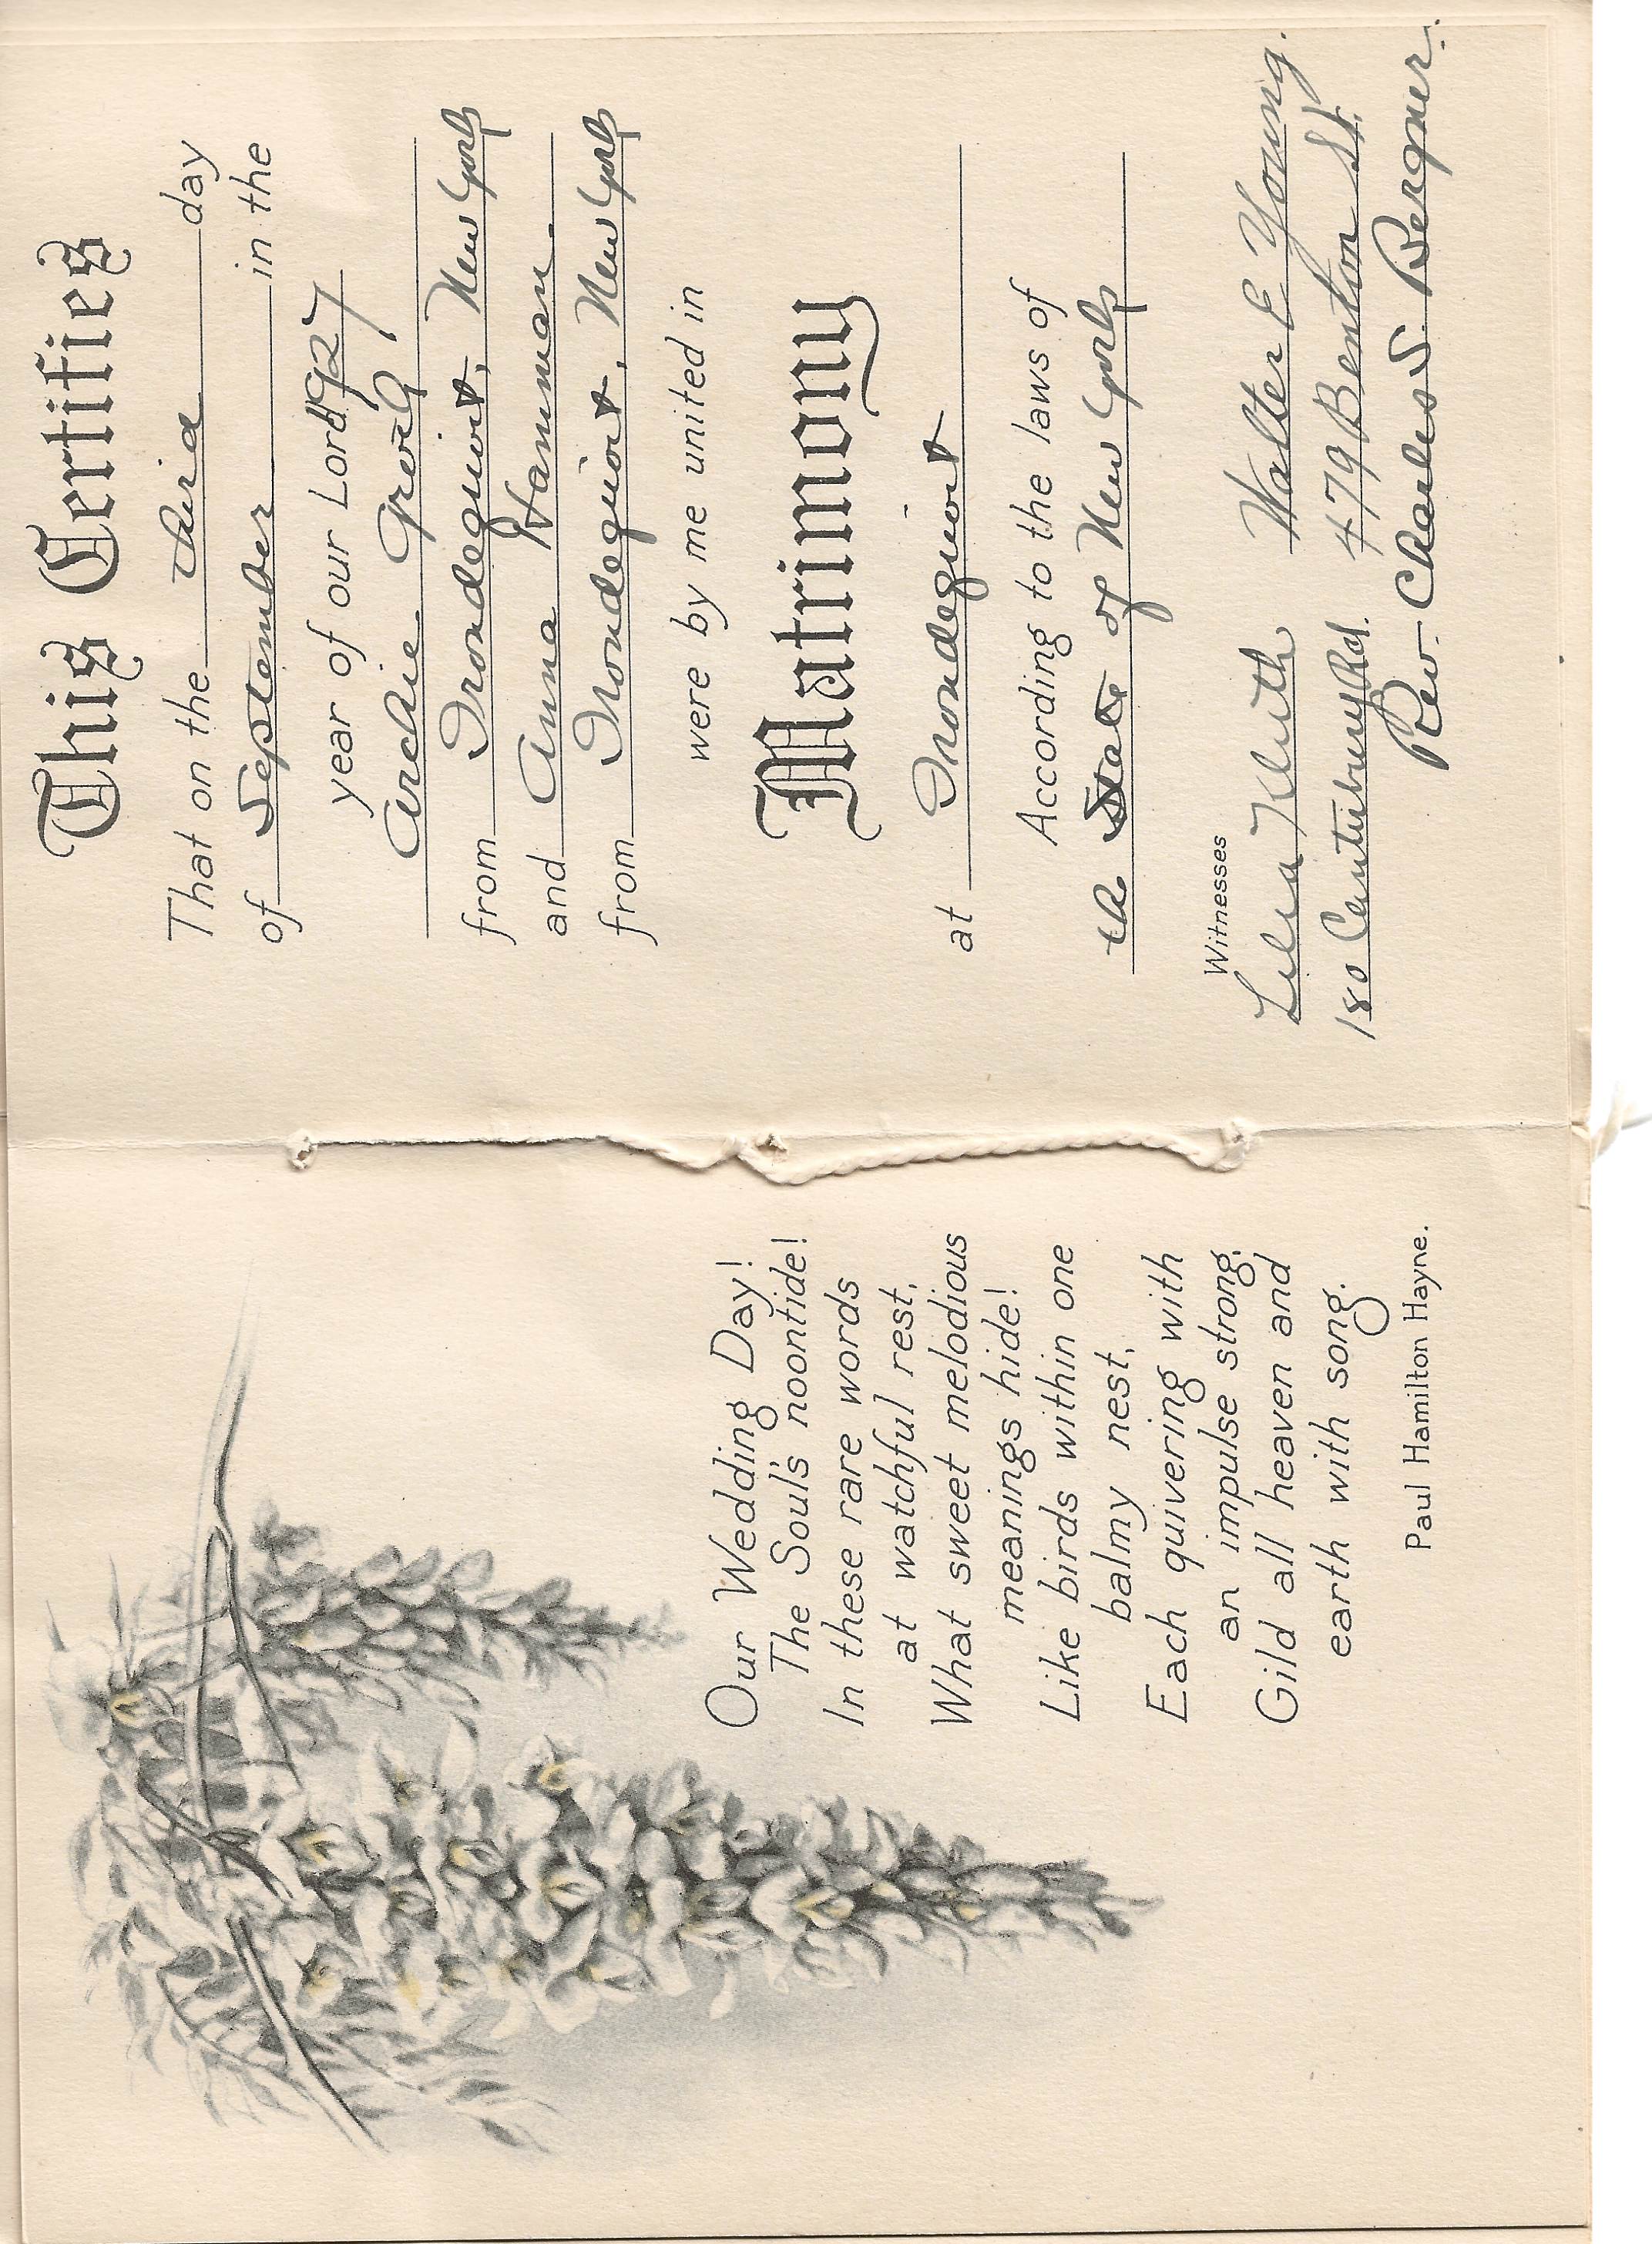 Our Wedding Day!
The Soul's noontide!
In these rare words
at watchful rest,
What sweet melodious
meanings hide!
Like birds within one
balmy nest,
Each quivering with
an impulse strong,
Gild all heaven and
earth with song.
Paul Hamilton Hayne.
This Certifies
That on the third day
of September in the
year of our Lord 1927
Archie Groth
from Irondequoit, New York
and Anna Hamman.
from Irondequoit, New York
were by me united in
Matrimony
at Irondequoit
According to the laws of
the State of New York
Witnesses
Kluth Walter E Young.
180 Canterbury Rd. 479 Benton St.
Rev. Charles S. Bergner.